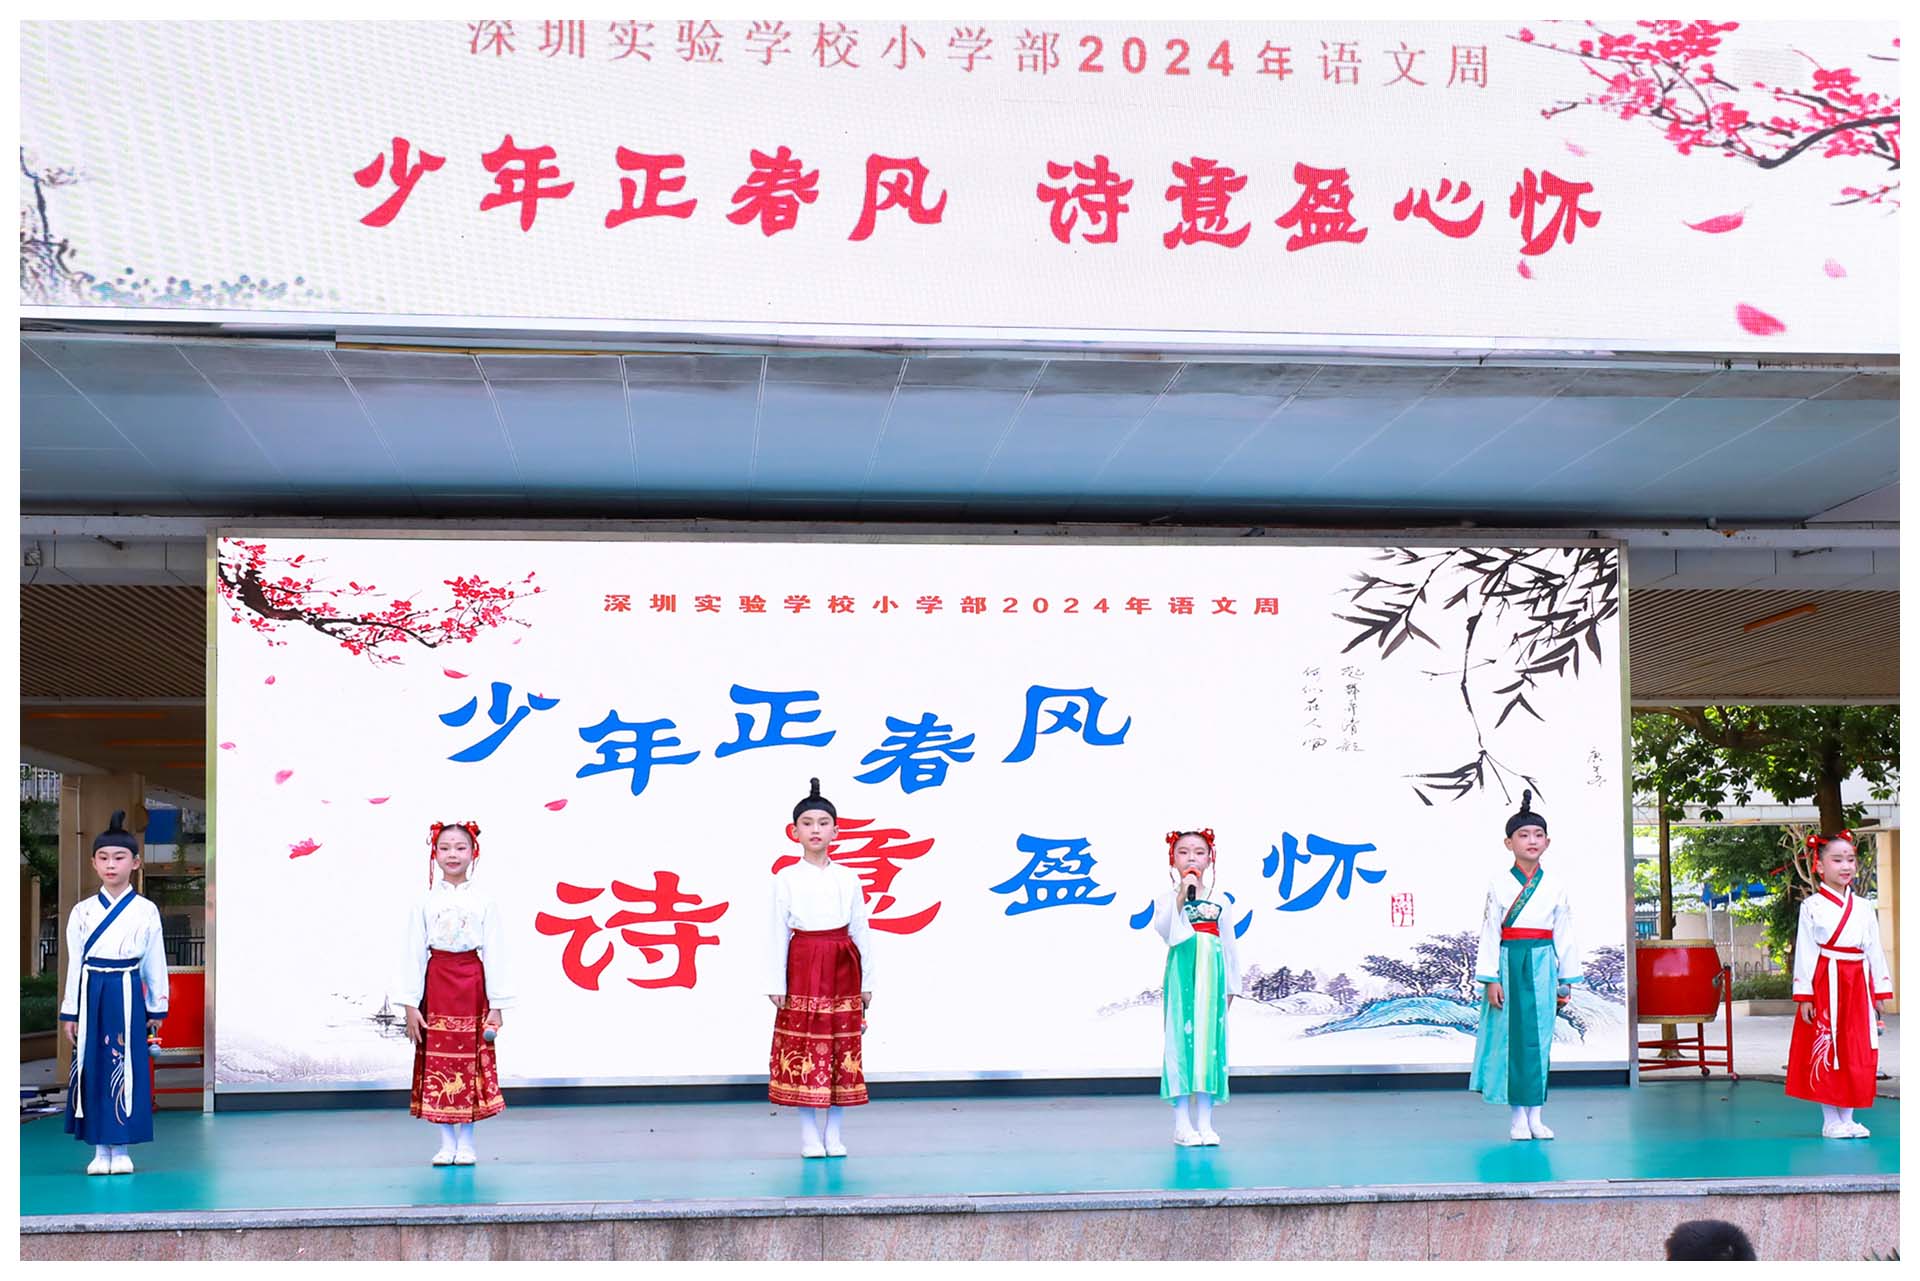 深圳实验学校小学部2024年语文周
少年正春风 诗意盈心怀
深圳实验学校小学部2024年语文周
少年正春风
诗意盈心怀
起舞弄清影
何似在人间